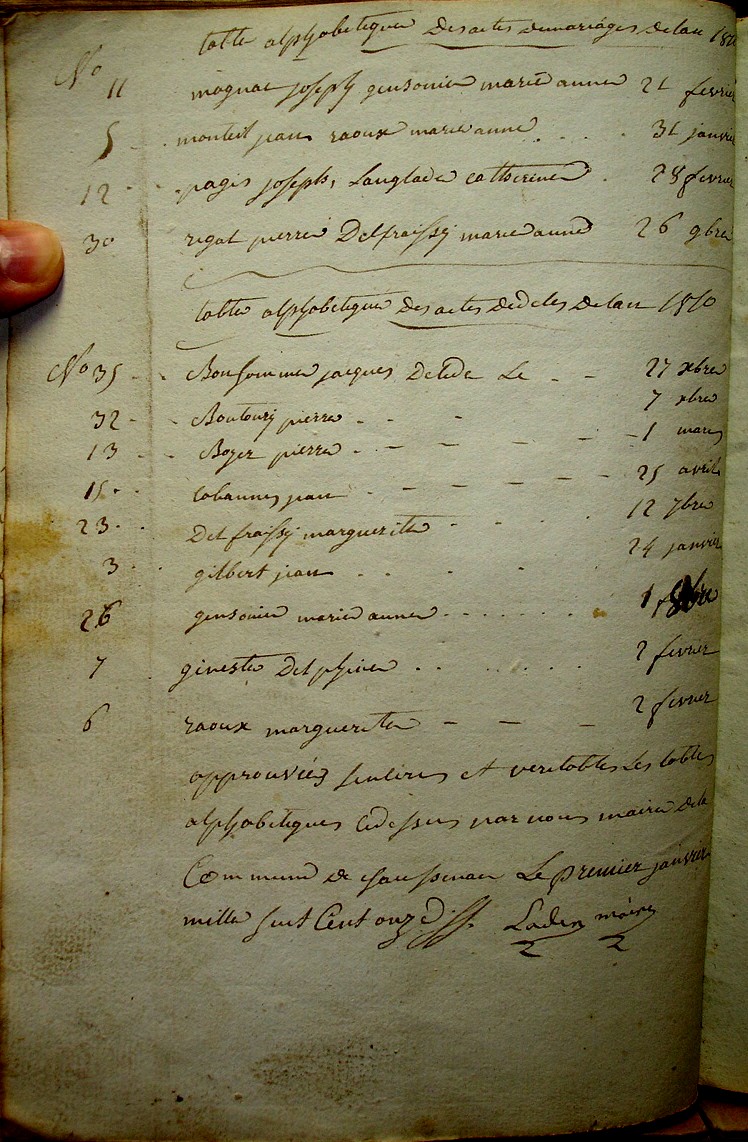 table alphabetique des actes de mariages de lan 1810
No 11 magnat joseph gensonie marie anne 21 fevrier
5 monteil jean raoux marie anne 31 janvier
12 pagis joseph, Langlade catherine 28 fevrier
30 rigal pierre Delfraissy marie anne 26 9bre
table alphabetique des actes de deces de lan 1810
No 35 Bonhomme jacques Decede Le 27 xbre
32 pierre 7 xbre
13 Boyer pierre 1 mars
15 Cabannes jean 25 avril
23 Delfraissy marguerite 12 7bre
3 gilbert jean 24 janvier
26 gensonie marie anne 1
7 gineste Delphine 2 fevrier
6 raoux marguerite 2 fevrier
approuvées et veritables Les tables
alphabetiques cidessus par nous maire de la
Commune de Le premier janvier
mille huit Cent onze maire